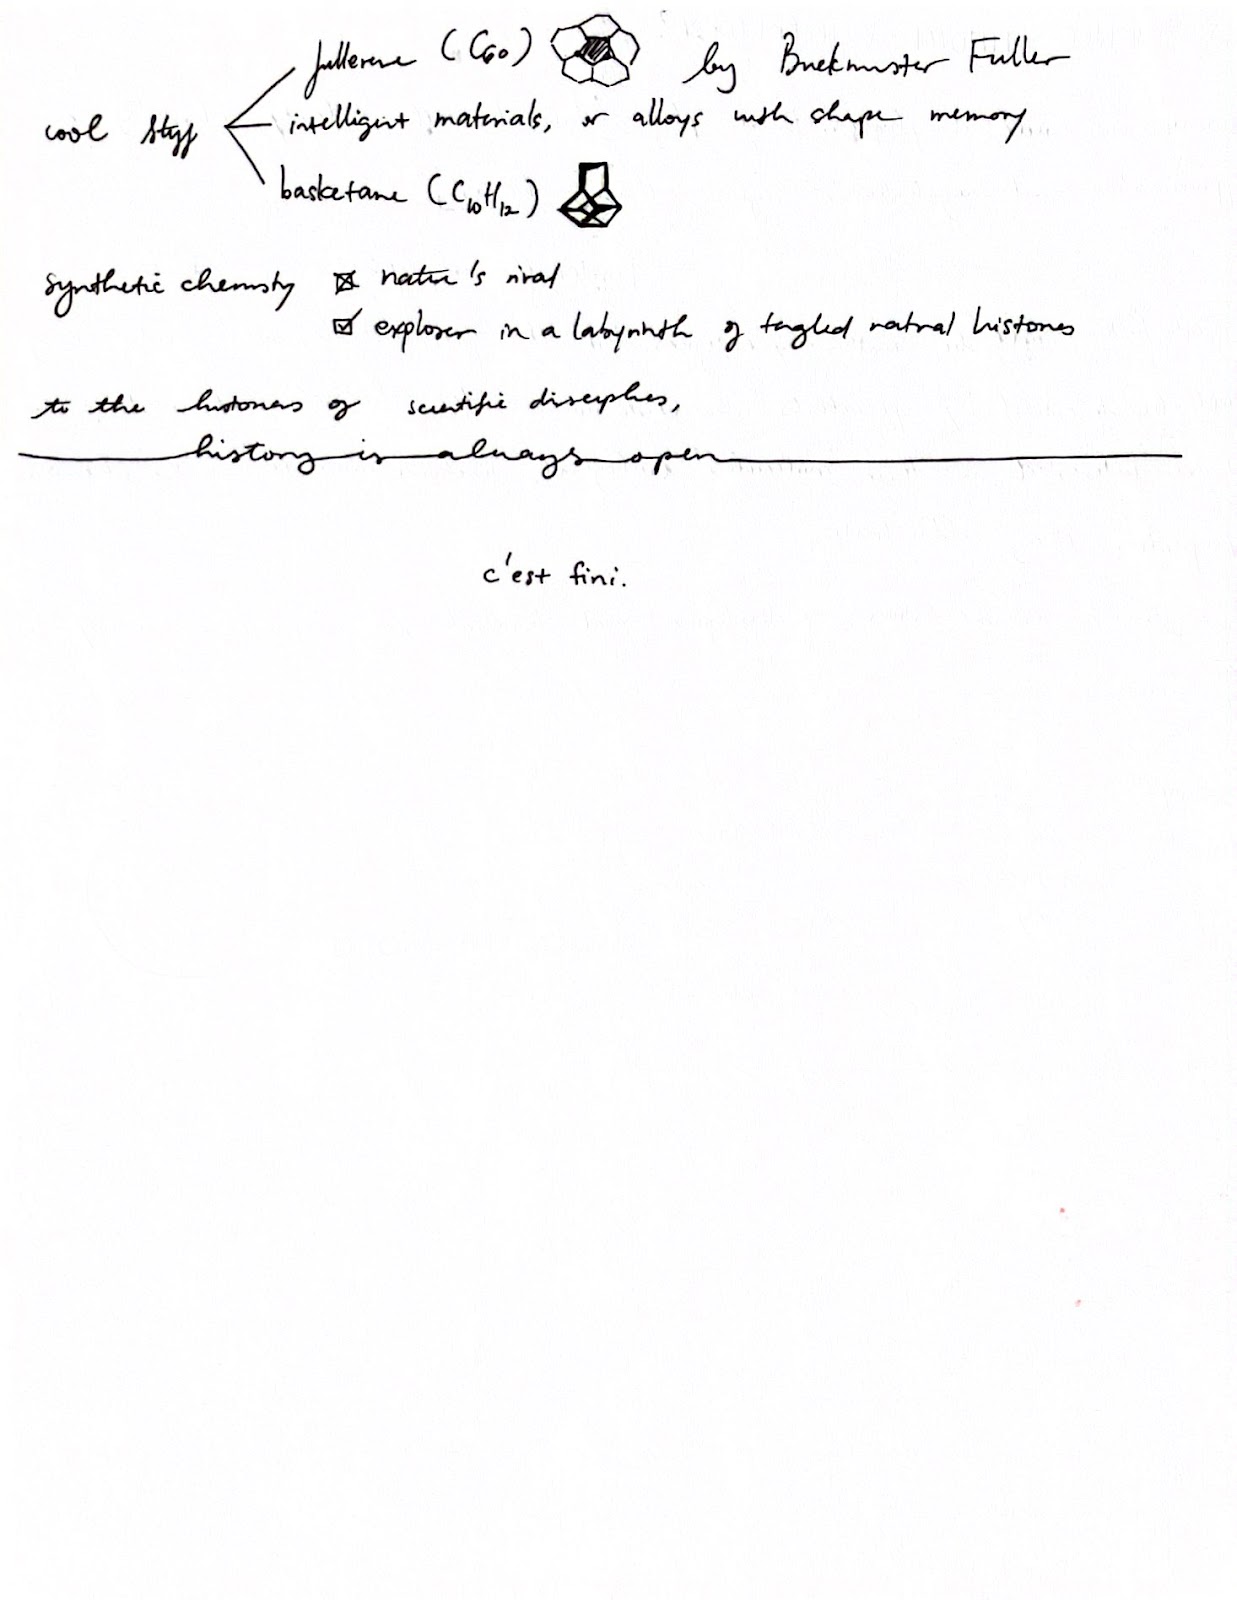 fullerene (C60) by Buckminster Fuller
cool stuff intelligent materials, or alloys with shape memory
basketane (C10H12)
synthetic chemistry ☒ nature's rival
☑ explorer in a labyrinth of tangled natural histories
to the historians of scientific disciplines,
history is always open
c'est fini.